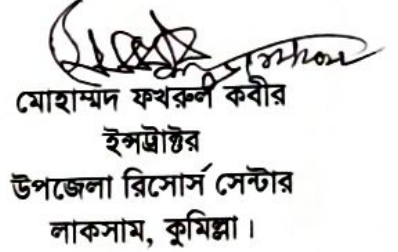 মোহাম্মদ ফখরুল কবীর
ইন্সট্রাক্টর
উপজেলা রিসোর্স সেন্টার
লাকসাম, কুমিল্লা।